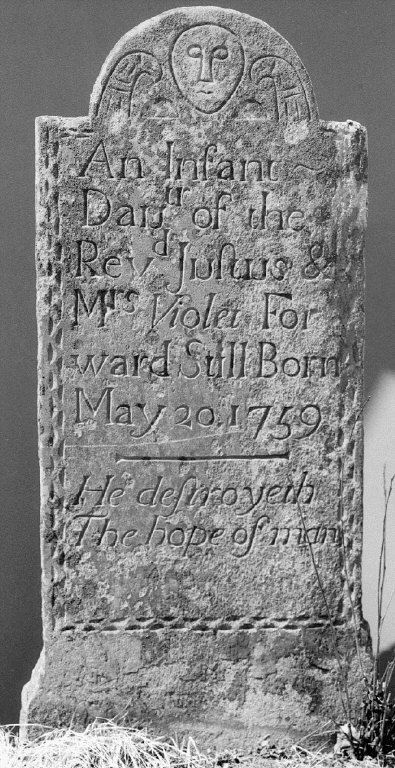 An Infant ~
Dauᵗʳ of the
Revᵈ Juſtus &
Mʳˢ Violet For
ward Still Born
May 20. 1759
He deſtroyeth
The hope of man